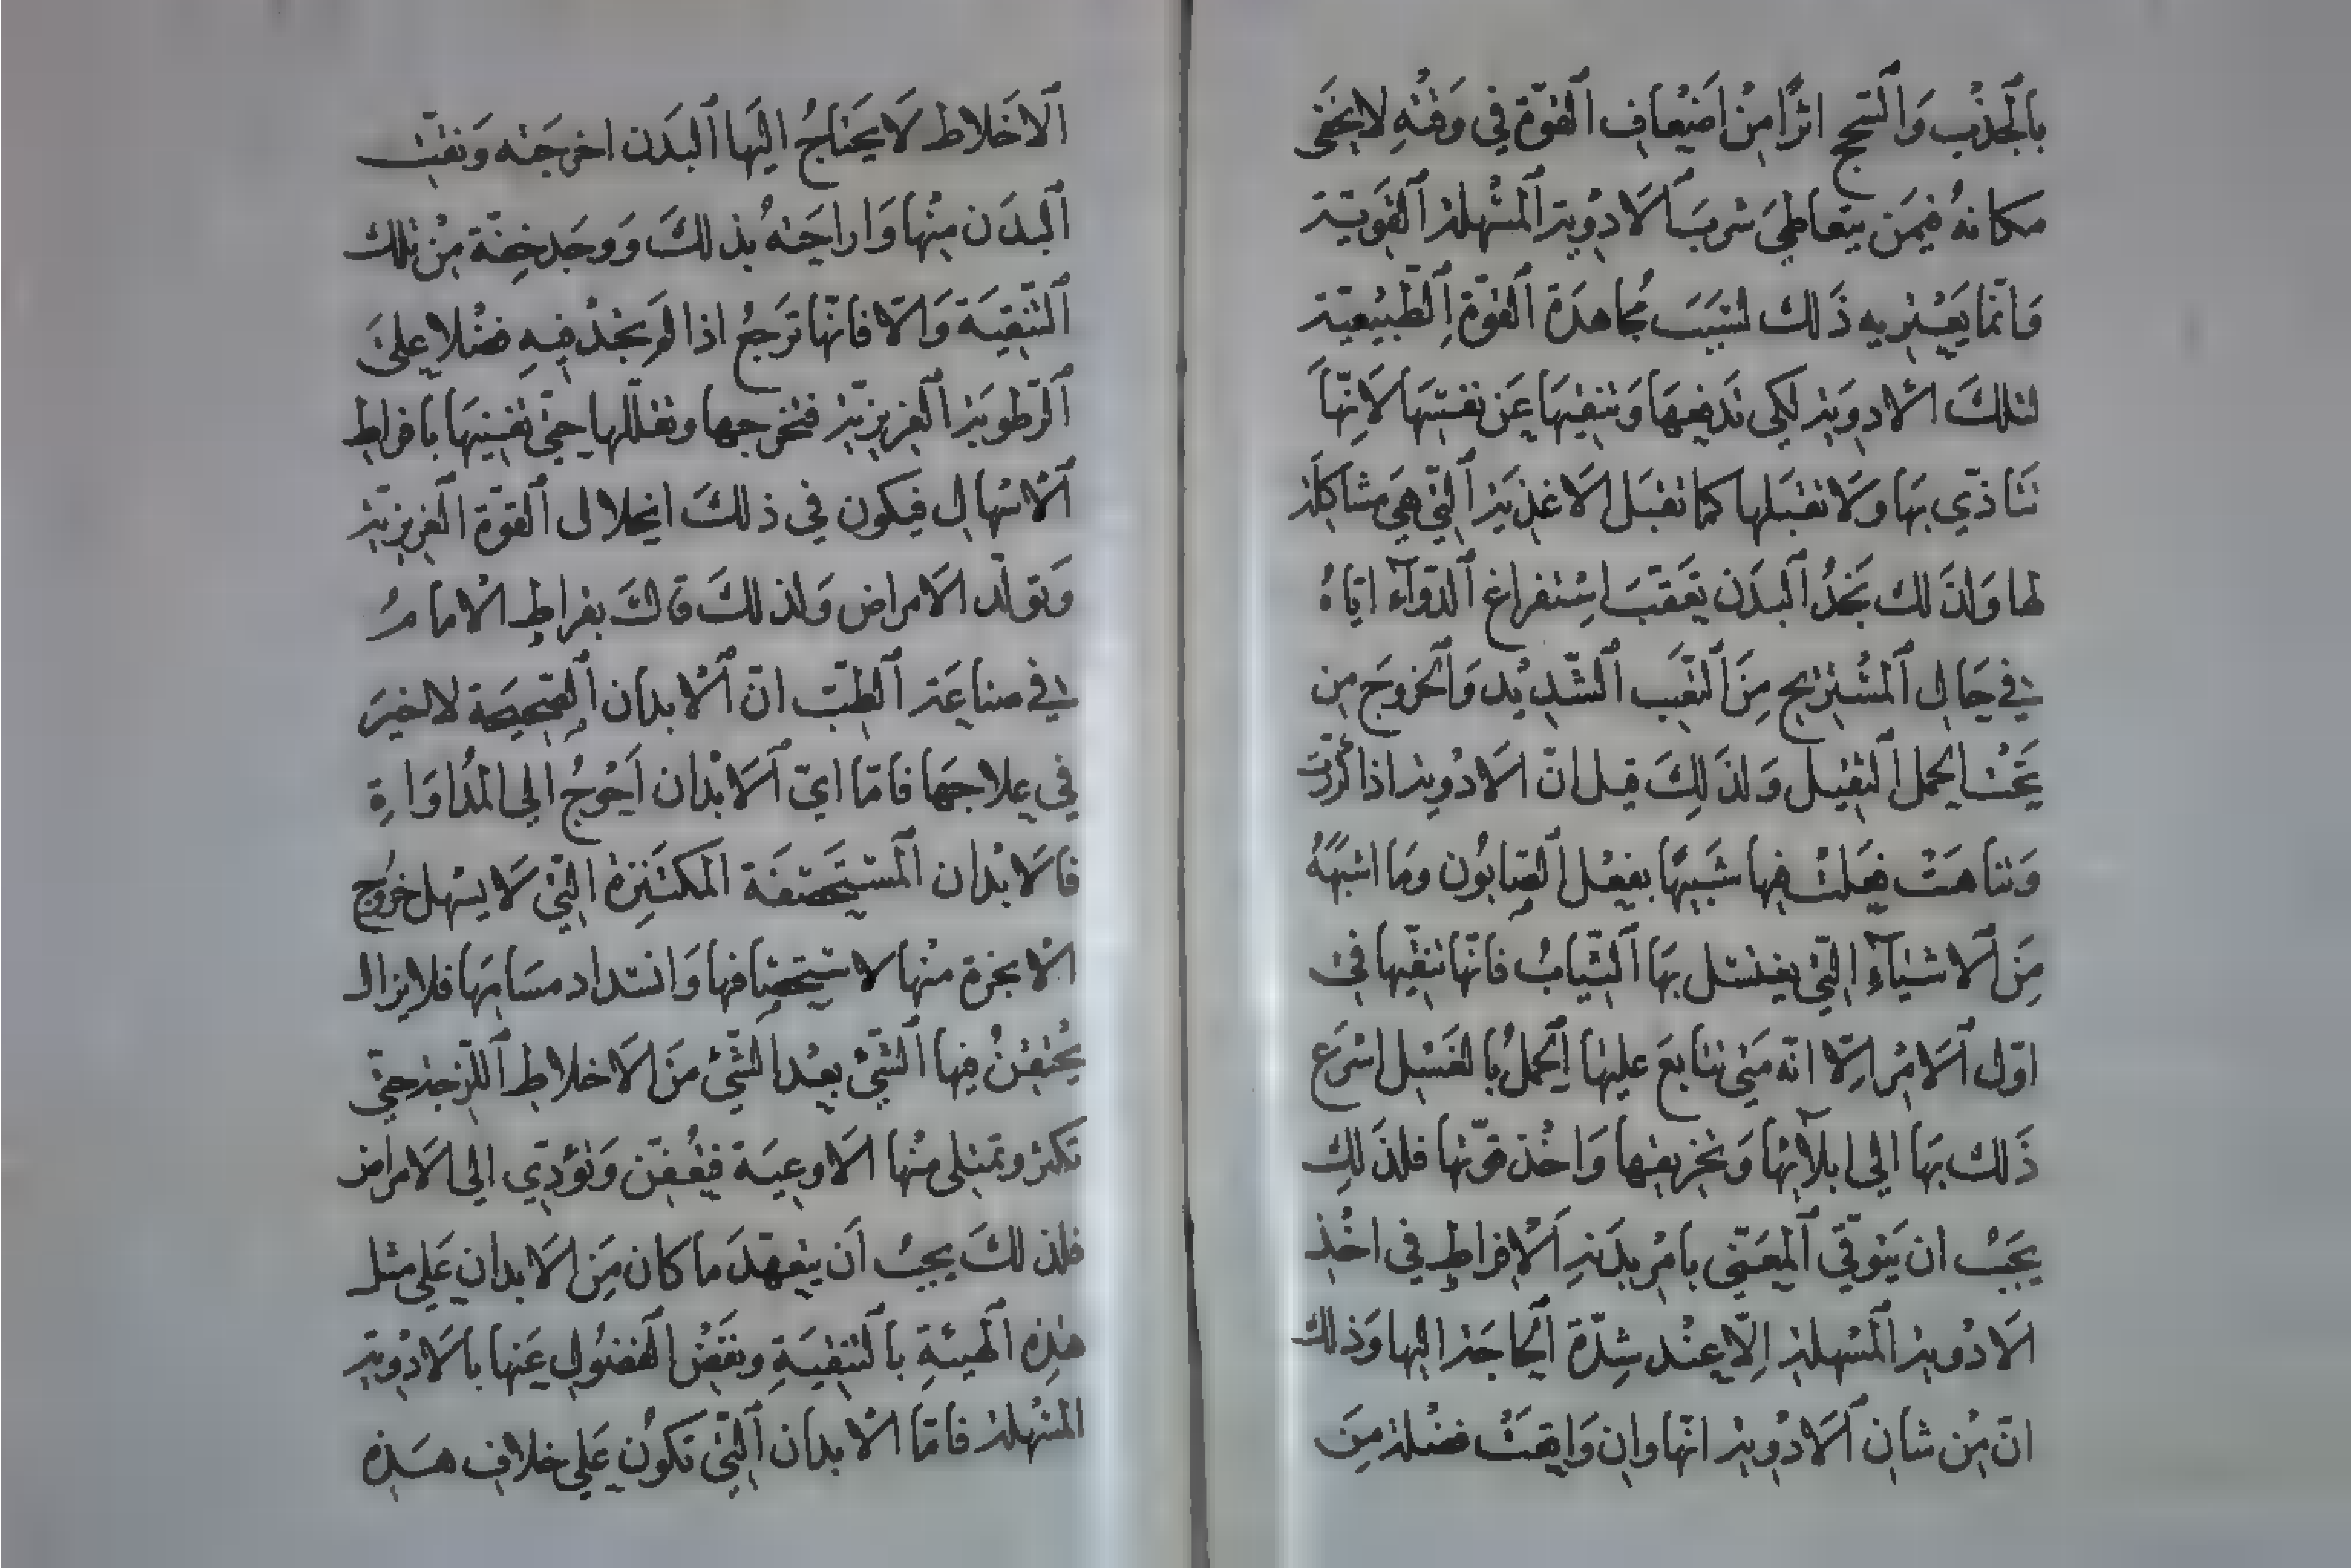 بالجذب والسحج اثرًا من اضعاف القوّة في وقته لا يخفى
مكانهُ فيمن يتعاطى شرب الادوية المسهلة القويّة
وانّما يعتريه ذلك لسبب مجاهدة القوّة الطّبيعيّة
لتلك الادوية لكى تدفعها وتنفيها عن نفسها لانّها
تتاذّي بها ولا تقبلها كما تقبل الاغذية الّتي هي مشاكلة
لها ولذلك تجدُ البدن تعقّب استفراغ الدّوآء ايّاهُ
في حال المستريح من التّعب الشّديد والخروج من
تحت الحمل الثقيل ولذلك قيل انّ الادوية اذا كُرّرت
وتناهت فعلت فيها شبيهًا بفعل الصّابُون وما اشبههُ
من الاشيآءِ الّتي يغتسل بها الثّيابُ فانّها تنقّيها في
اوّل الامر الّا انّه متى تتابع عليها الحملُ بالغسل اسرع
ذلك بها الى ابلآئها وتخريقها واخذ قوّتها فلذلك
يجبُ ان يتوقّى المعتنى بامر بدنه الافراط في اخذ
الادوية المسهلة الّا عند شدّة الحاجة اليها وذلك
انّ من شان الادوية انّها وان وافقت فضلة من
الاخلاط لا يحتاجُ اليها البدن اخرجته ونقّت
البدن منها واراحته بذلك ووجد خفّة من تلك
التّنقية والّا فانّها ترجع اذا لم تجدْ فيه فضلا على
الرّطوبة الغريزيّة فتخرجها وتقلّلها حتّى تفنيها بافراط
الاسهال فيكون في ذلك انحلال القوّة الغريزيّة
وتولّد الامراض ولذلك قال بقراط الامامُ
في صناعة الطبّ انّ الابدان الصّحيحة لا خير
في علاجها فامّا ايّ الابدان احوجُ الى المُداواةِ
فالابدان المستحصفة المكتنزة الّتي لا يسهل خروج
الابخرة منها لاستحصافها وانسداد مسامها فلا يزال
يُحتقنُ فيها الشّيءُ بعد الشّيءُ من الاخلاط اللّزجة حتّى
تكثر وتمتلى منها الاوعية فتعفّن وتؤدّي الى الامراض
فلذلك يجبُ ان يتعهّد ما كان من الابدان على مثل
هذه الهيئة بالتنقية ونفض الفضول عنها بالادوية
المسهلة فامّا الابدان الّتي تكون على خلاف هذه